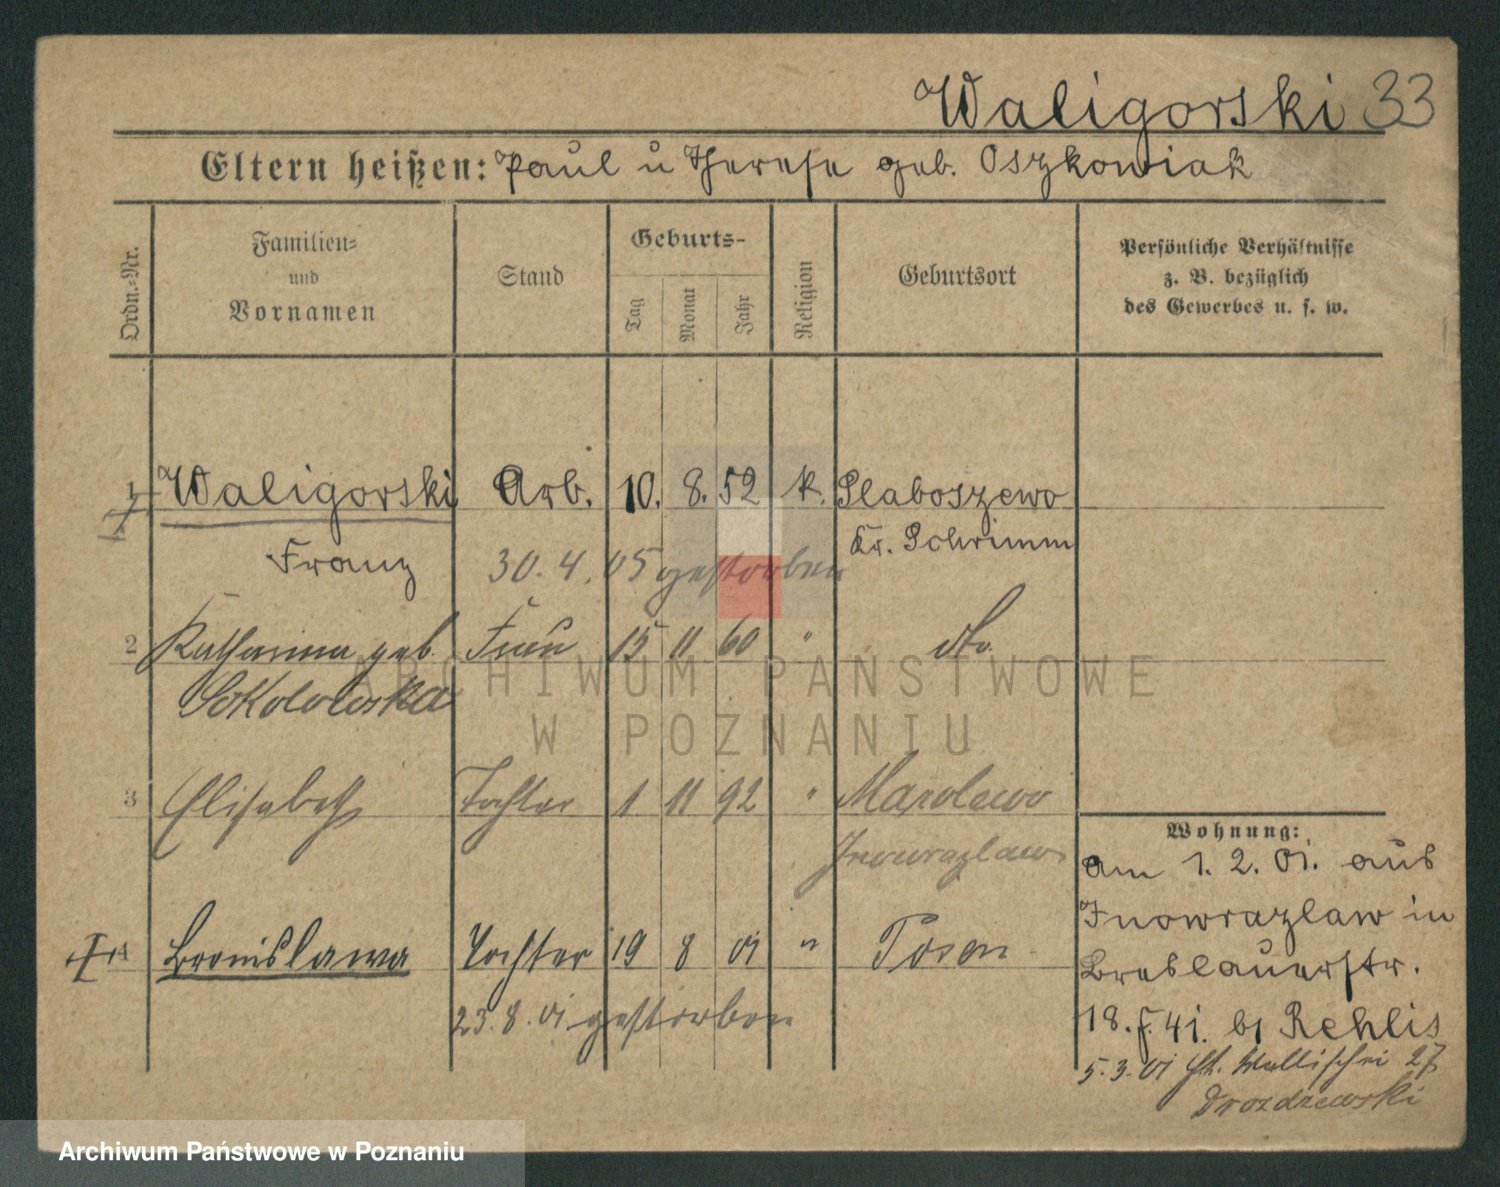 Waligorski 33
Eltern heißen: Paul u Therese geb. Oszkowiak
Ordn.-Nr.
Familien-
und
Vornamen
Stand
Geburts-
Tag
Monat
Jahr
Religion
Geburtsort
Persönliche Verhältnisse
z. B. bezüglich
des Gewerbes u. s. w.
1 Waligorski Arb. 10. 8. 52 k. Slaboszewo
Kr. Schrimm
Franz 30. 4. 05 gestorben
2 Katharina geb. Frau 15 11 60 " dto.
Sokolowska
3 Elisabeth Tochter 1 11 92 "
Inowrazlaw
4 Bronislawa Tochter 19 8 01 " Posen
23. 8. 01 gestorben
Wohnung:
am 1. 2. 01. aus
Inowrazlaw in
Breslauerstr.
18. f. 41. bj Rehlis
5. 3. 01 Wallischei 27
Drozdzewski
ARCHIWUM PAŃSTWOWE
W POZNANIU
Archiwum Państwowe w Poznaniu